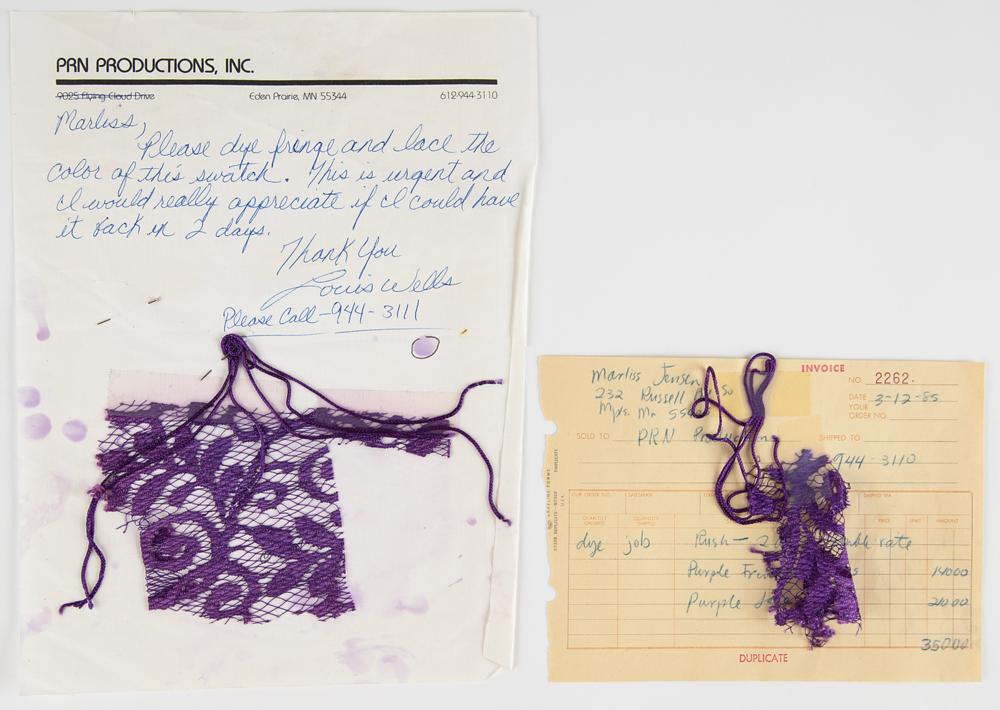 PRN PRODUCTIONS, INC.
9025 Flying Cloud Drive Eden Prairie, MN 55344 612-944-3110
Marliss,
Please dye fringe and lace the
color of this swatch. This is urgent and
I would really appreciate if I could have
it back in 2 days.
Thank You
Louis Wells
Please Call - 944-3111
INVOICE
Marliss Jensen
NO. 2262.
232 Russell
DATE 3-12-85
Mpls. Mn
YOUR
ORDER NO.
SOLD TO PRN
SHIPPED TO
944-3110
OUR ORDER NO. SALESMAN SHIPPED VIA
QUANTITY ORDERED QUANTITY SHIPPED PRICE UNIT AMOUNT
dye job Rush - 2 rate
Purple 140 00
Purple 210 00
350 00
DUPLICATE